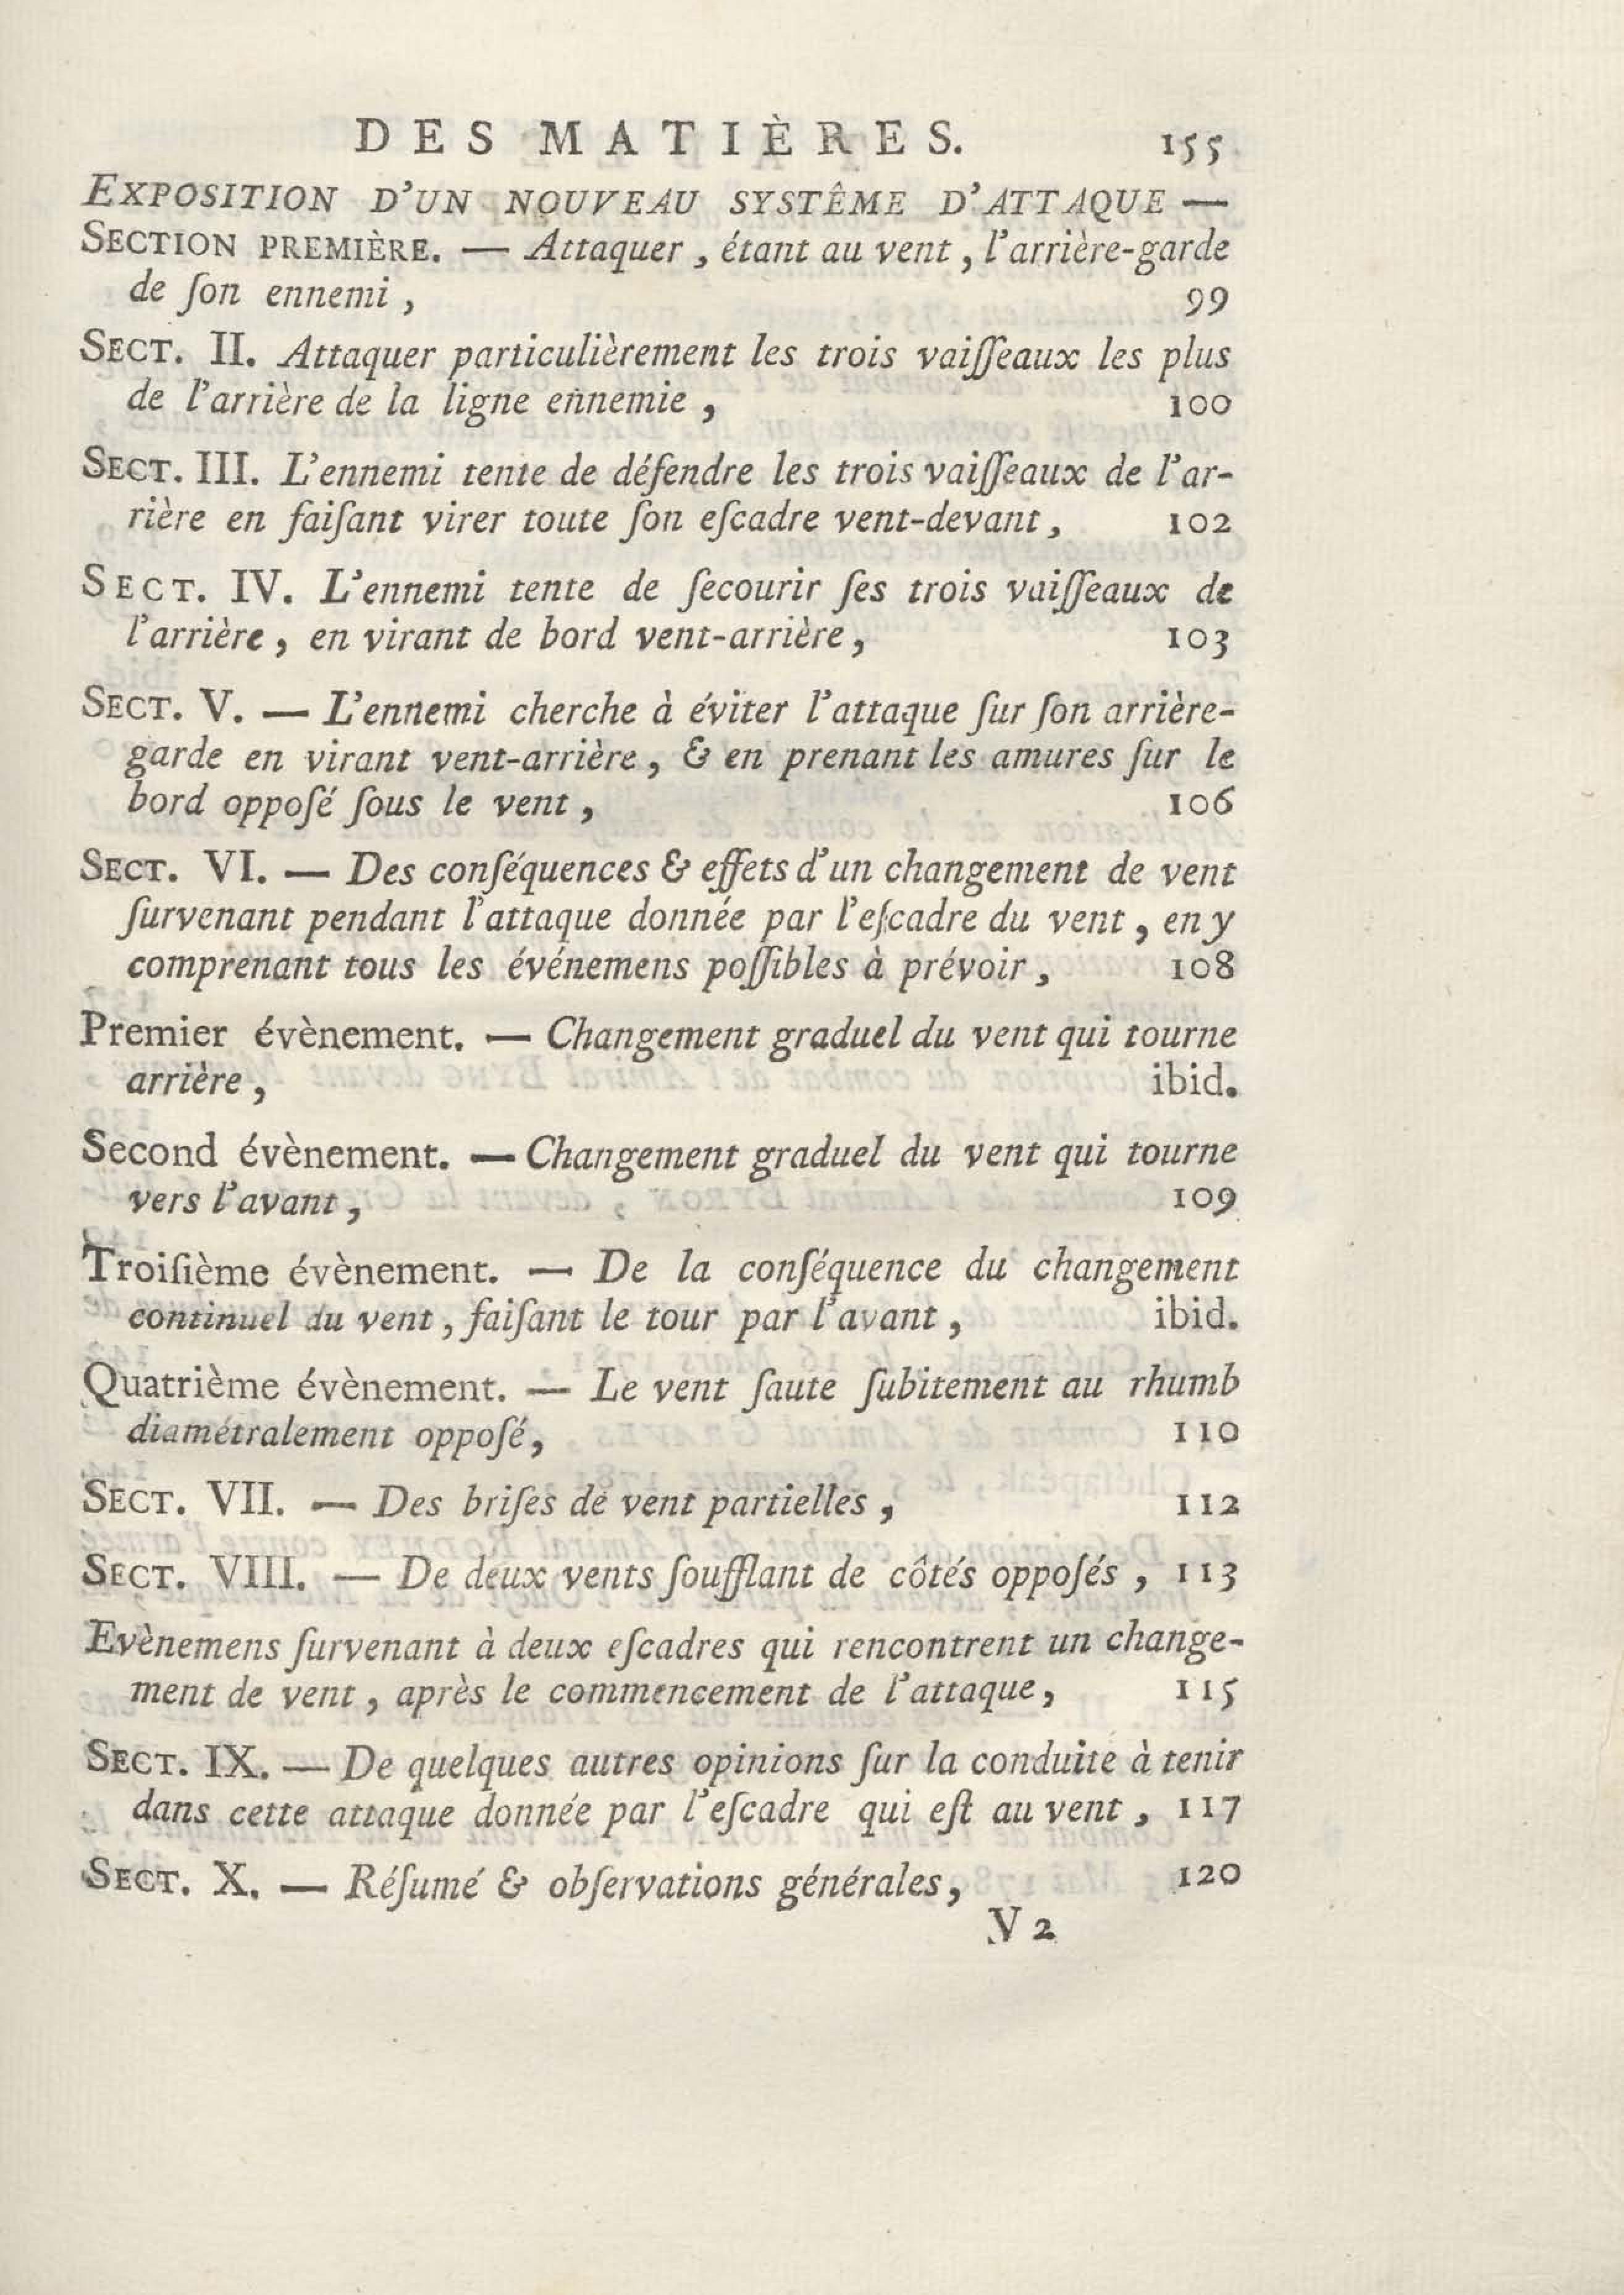 DES MATIÈRES. 155
EXPOSITION D'UN NOUVEAU SYSTÊME D'ATTAQUE —
SECTION PREMIÈRE. — Attaquer, étant au vent, l'arrière-garde
de ſon ennemi, 99
SECT. II. Attaquer particulièrement les trois vaiſſeaux les plus
de l'arrière de la ligne ennemie, 100
SECT. III. L'ennemi tente de défendre les trois vaiſſeaux de l'ar-
rière en faiſant virer toute ſon eſcadre vent-devant, 102
SECT. IV. L'ennemi tente de ſecourir ſes trois vaiſſeaux de
l'arrière, en virant de bord vent-arrière, 103
SECT. V. — L'ennemi cherche à éviter l'attaque ſur ſon arrière-
garde en virant vent-arrière, & en prenant les amures ſur le
bord oppoſé ſous le vent, 106
SECT. VI. — Des conſéquences & effets d'un changement de vent
ſurvenant pendant l'attaque donnée par l'eſcadre du vent, en y
comprenant tous les événemens poſſibles à prévoir, 108
Premier évènement. — Changement graduel du vent qui tourne
arrière, ibid.
Second évènement. — Changement graduel du vent qui tourne
vers l'avant, 109
Troiſième évènement. — De la conſéquence du changement
continuel du vent, faiſant le tour par l'avant, ibid.
Quatrième évènement. — Le vent ſaute ſubitement au rhumb
diamétralement oppoſé, 110
SECT. VII. — Des briſes de vent partielles, 112
SECT. VIII. — De deux vents ſoufflant de côtés oppoſés, 113
Evènemens ſurvenant à deux eſcadres qui rencontrent un change-
ment de vent, après le commencement de l'attaque, 115
SECT. IX. — De quelques autres opinions ſur la conduite à tenir
dans cette attaque donnée par l'eſcadre qui eſt au vent, 117
SECT. X. — Réſumé & obſervations générales, 120
V 2